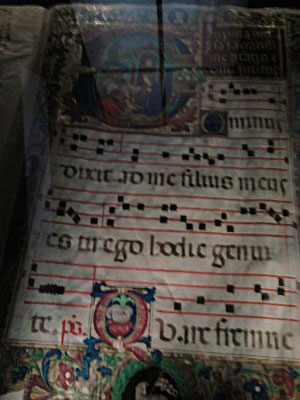 Dominus
dixit ad me filius meus
es tu ego hodie genui
te. ps. Quare fremue